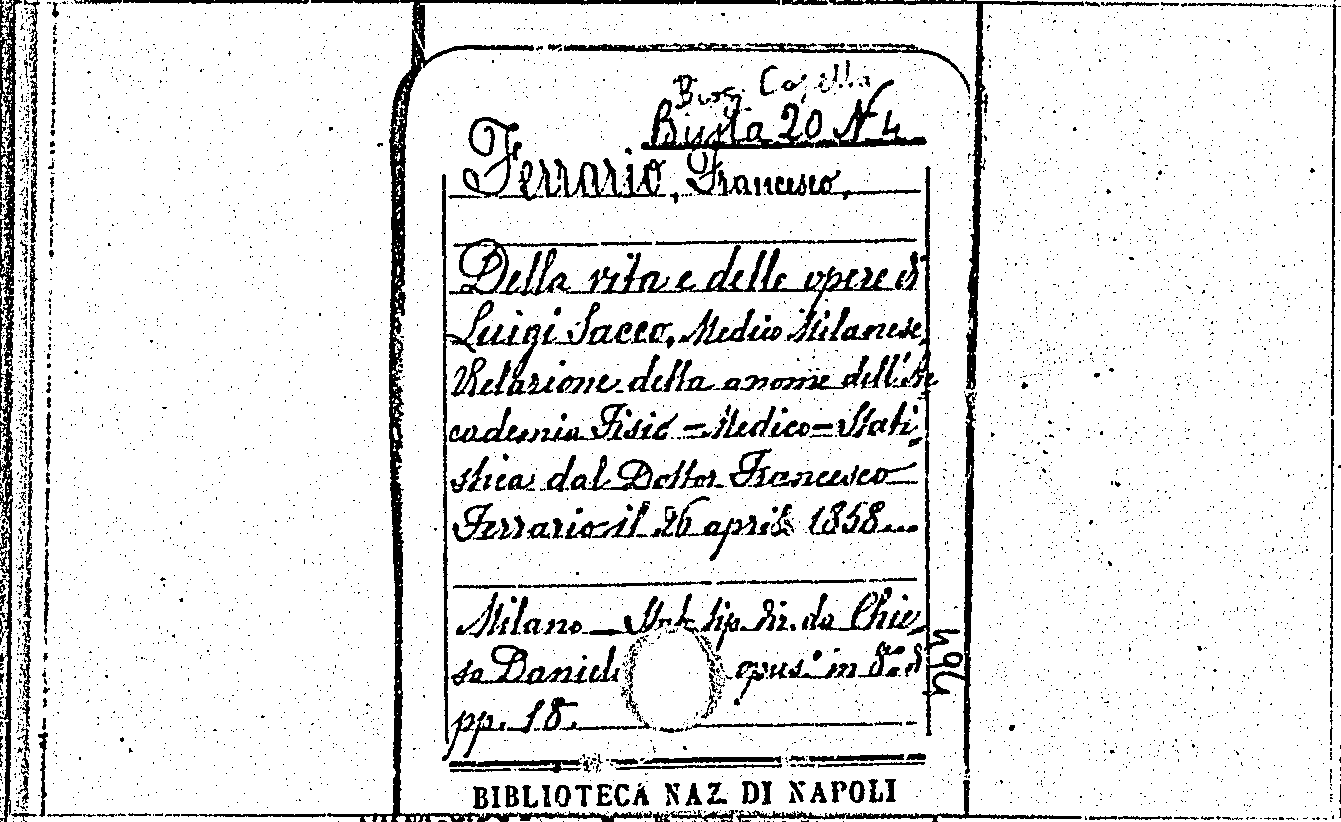 Busta 20 N 4
Ferrario, Francesco,
Della vita e delle opere di
Luigi Sacco, Medico Milanese,
Relazione della anome dell'Ac
cademia Fisio-Medico-Stati-
stica dal Dottor Francesco
Ferrario il 26 aprile 1858...
Milano - Stab. tip. dir. da Chie,
sa Daniele opus.° in 8.° di
pp. 18.
BIBLIOTECA NAZ. DI NAPOLI